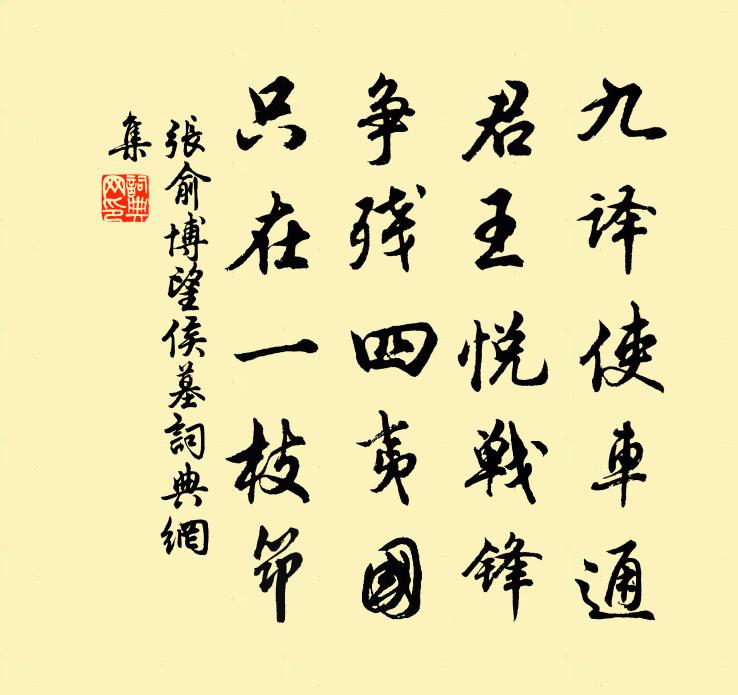 九译使车通
君王悦战锋
争残四夷国
只在一枝筇
張俞博望侯墓詞典網
集
詞典網印